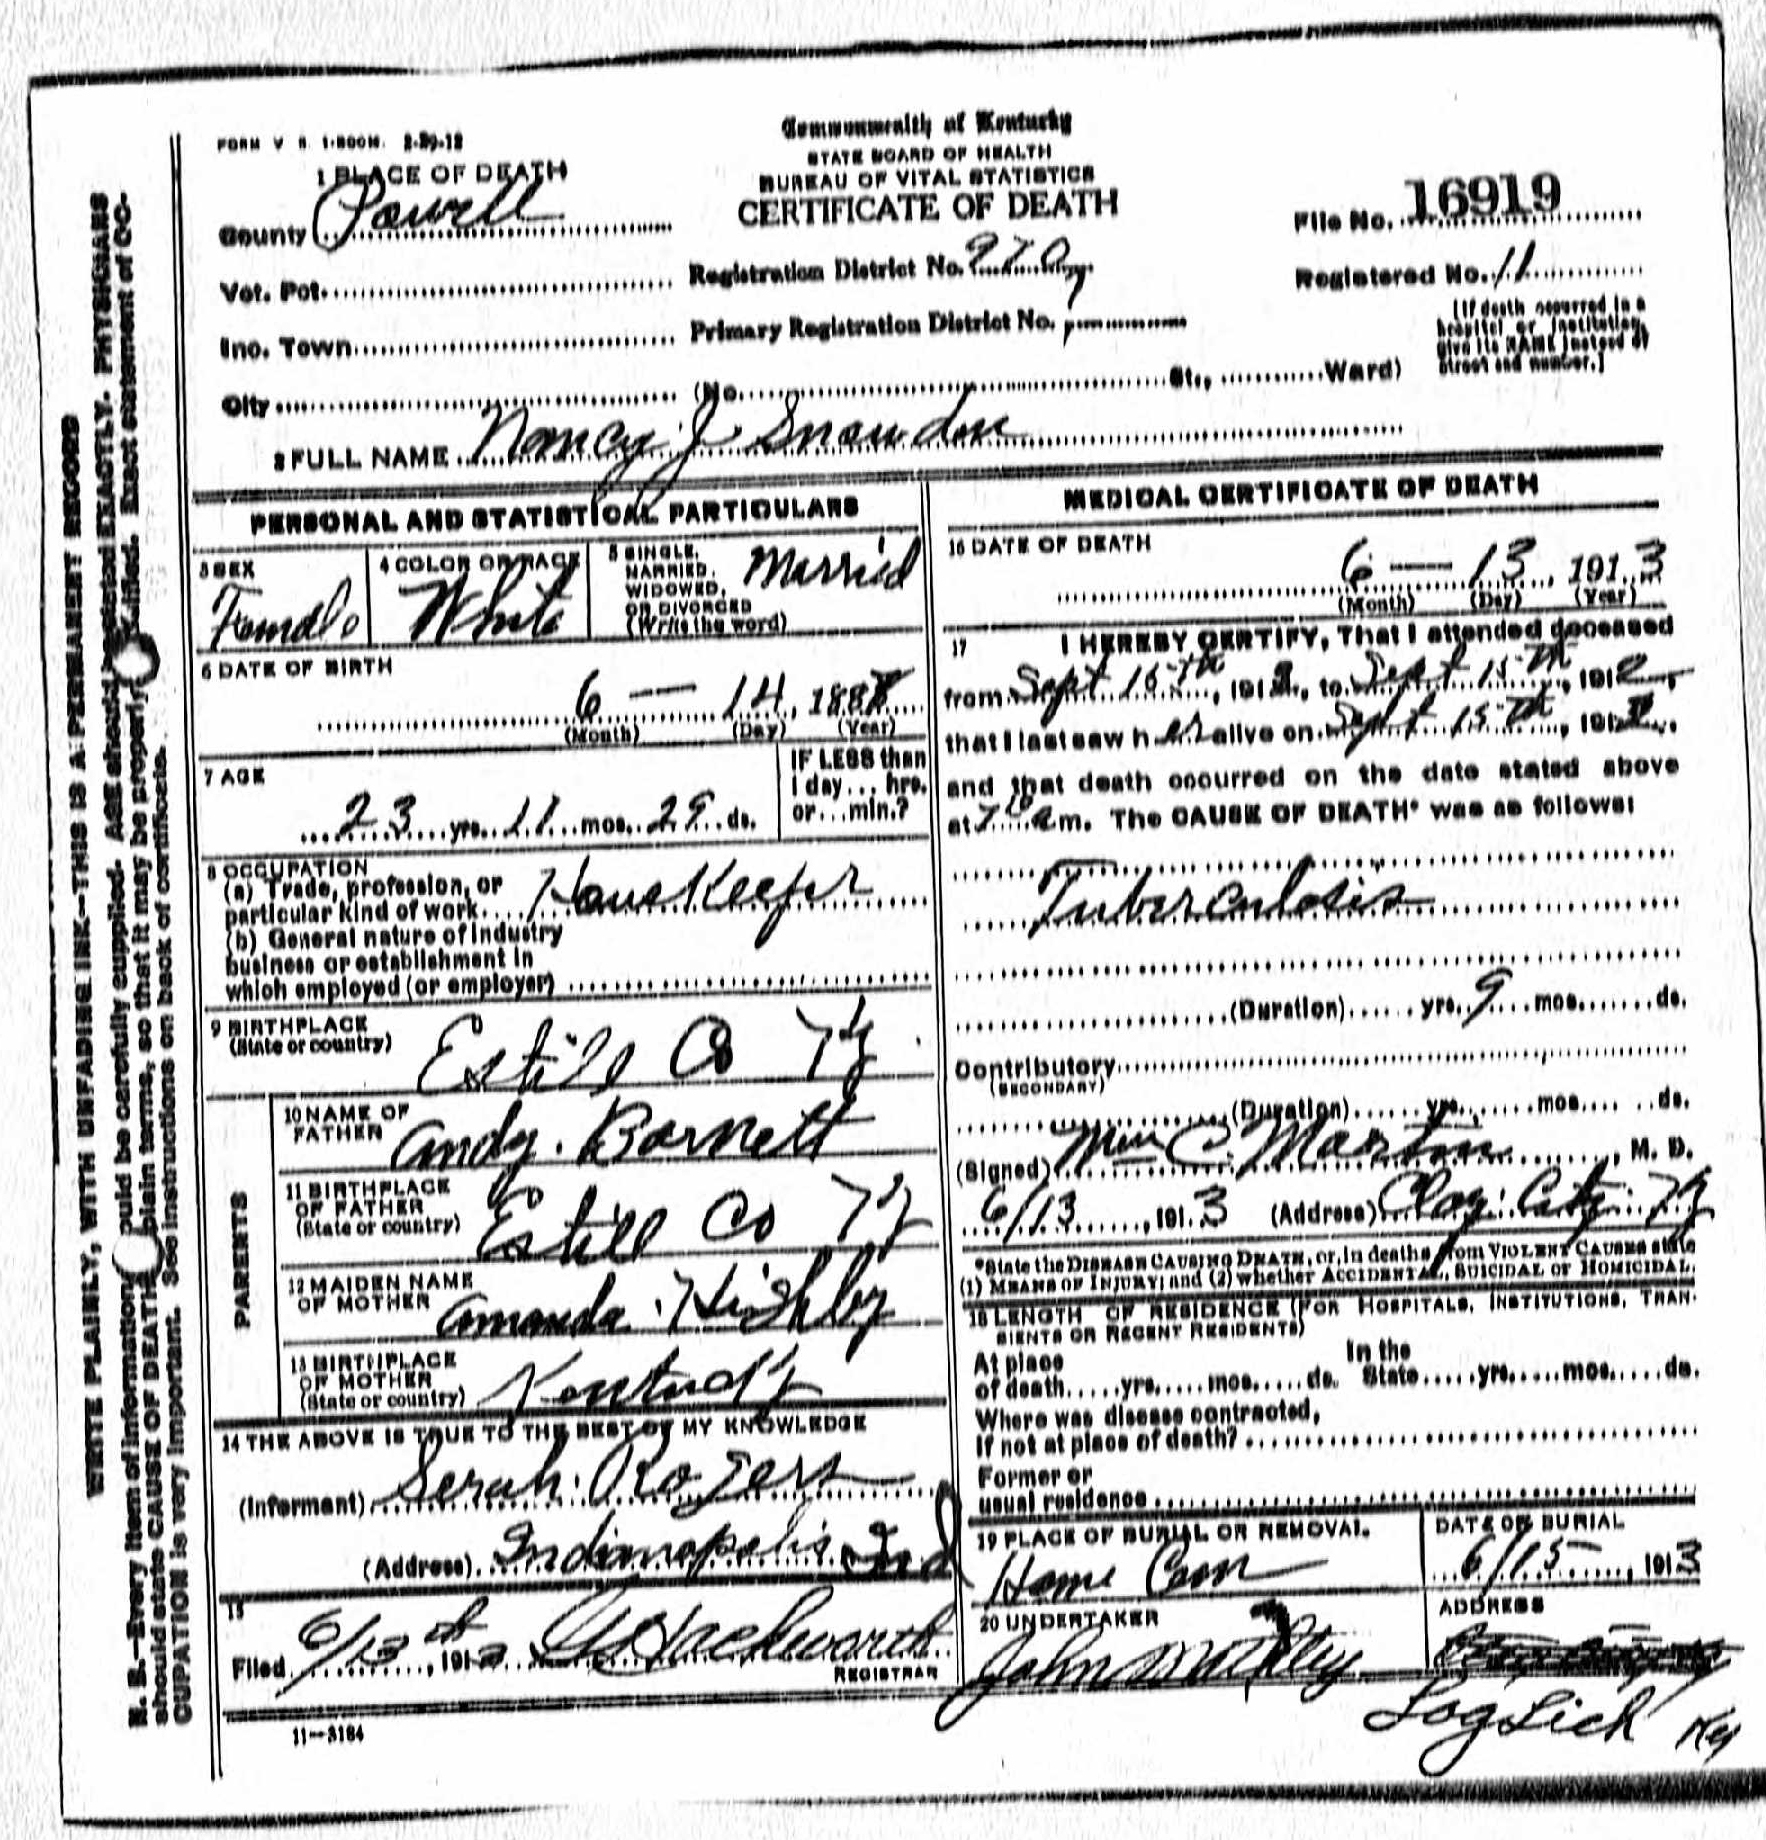 FORM V. S. 1-500M. 2-29-12
Commonwealth of Kentucky
STATE BOARD OF HEALTH
BUREAU OF VITAL STATISTICS
CERTIFICATE OF DEATH
1 PLACE OF DEATH
County Powell
Vot. Pct.
Inc. Town
City (No. St., Ward)
Registration District No. 970
Primary Registration District No.
File No. 16919
Registered No. 11
[If death occurred in a
hospital or institution,
give its NAME instead of
street and number.]
2 FULL NAME Nancy J Snowden
PERSONAL AND STATISTICAL PARTICULARS
3 SEX
Female
4 COLOR OR RACE
White
5 SINGLE,
MARRIED,
WIDOWED,
OR DIVORCED
(Write the word)
Married
6 DATE OF BIRTH
6 — 14, 188
(Month) (Day) (Year)
7 AGE
23 yrs. 11 mos. 29 ds.
IF LESS than
1 day... hrs.
or...min.?
8 OCCUPATION
(a) Trade, profession, or
particular kind of work.... House Keeper
(b) General nature of industry
business or establishment in
which employed (or employer)
9 BIRTHPLACE
(State or country)
Estill Co Ky
PARENTS
10 NAME OF
FATHER
Andy Barnett
11 BIRTHPLACE
OF FATHER
(State or country)
Estill Co Ky
12 MAIDEN NAME
OF MOTHER
Amanda Highley
13 BIRTHPLACE
OF MOTHER
(State or country)
Kentucky
14 THE ABOVE IS TRUE TO THE BEST OF MY KNOWLEDGE
(Informant) Serah Rogers
(Address) Indianapolis Ind
15
Filed 6/13th, 191 Hackworth
REGISTRAR
11—3184
MEDICAL CERTIFICATE OF DEATH
16 DATE OF DEATH
6 — 13, 1913
(Month) (Day) (Year)
17 I HEREBY CERTIFY, That I attended deceased
from Sept 15th, 1912, to Sept 15th, 1912,
that I last saw her alive on Sept 15th, 1912,
and that death occurred on the date stated above
at 7 am. The CAUSE OF DEATH* was as follows:
Tuberculosis
(Duration) yrs. 9 mos. ds.
Contributory
(SECONDARY)
(Duration) yrs. mos. ds.
(Signed) Wm C. Martin, M. D.
6/13, 1913 (Address) Clay City Ky
*State the DISEASE CAUSING DEATH, or, in deaths from VIOLENT CAUSES state
(1) MEANS OF INJURY; and (2) whether ACCIDENTAL, SUICIDAL or HOMICIDAL.
18 LENGTH OF RESIDENCE (FOR HOSPITALS, INSTITUTIONS, TRAN-
SIENTS OR RECENT RESIDENTS)
At place In the
of death yrs. mos. ds. State yrs. mos. ds.
Where was disease contracted,
if not at place of death?
Former or
usual residence
19 PLACE OF BURIAL OR REMOVAL
Home Cem
DATE OF BURIAL
6/15, 1913
20 UNDERTAKER
John
ADDRESS
Log Lick Ky
WRITE PLAINLY, WITH UNFADING INK—THIS IS A PERMANENT RECORD
N. B.—Every item of information should be carefully supplied. AGE should be stated EXACTLY. PHYSICIANS
should state CAUSE OF DEATH in plain terms, so that it may be properly classified. Exact statement of OC-
CUPATION is very important. See instructions on back of certificate.